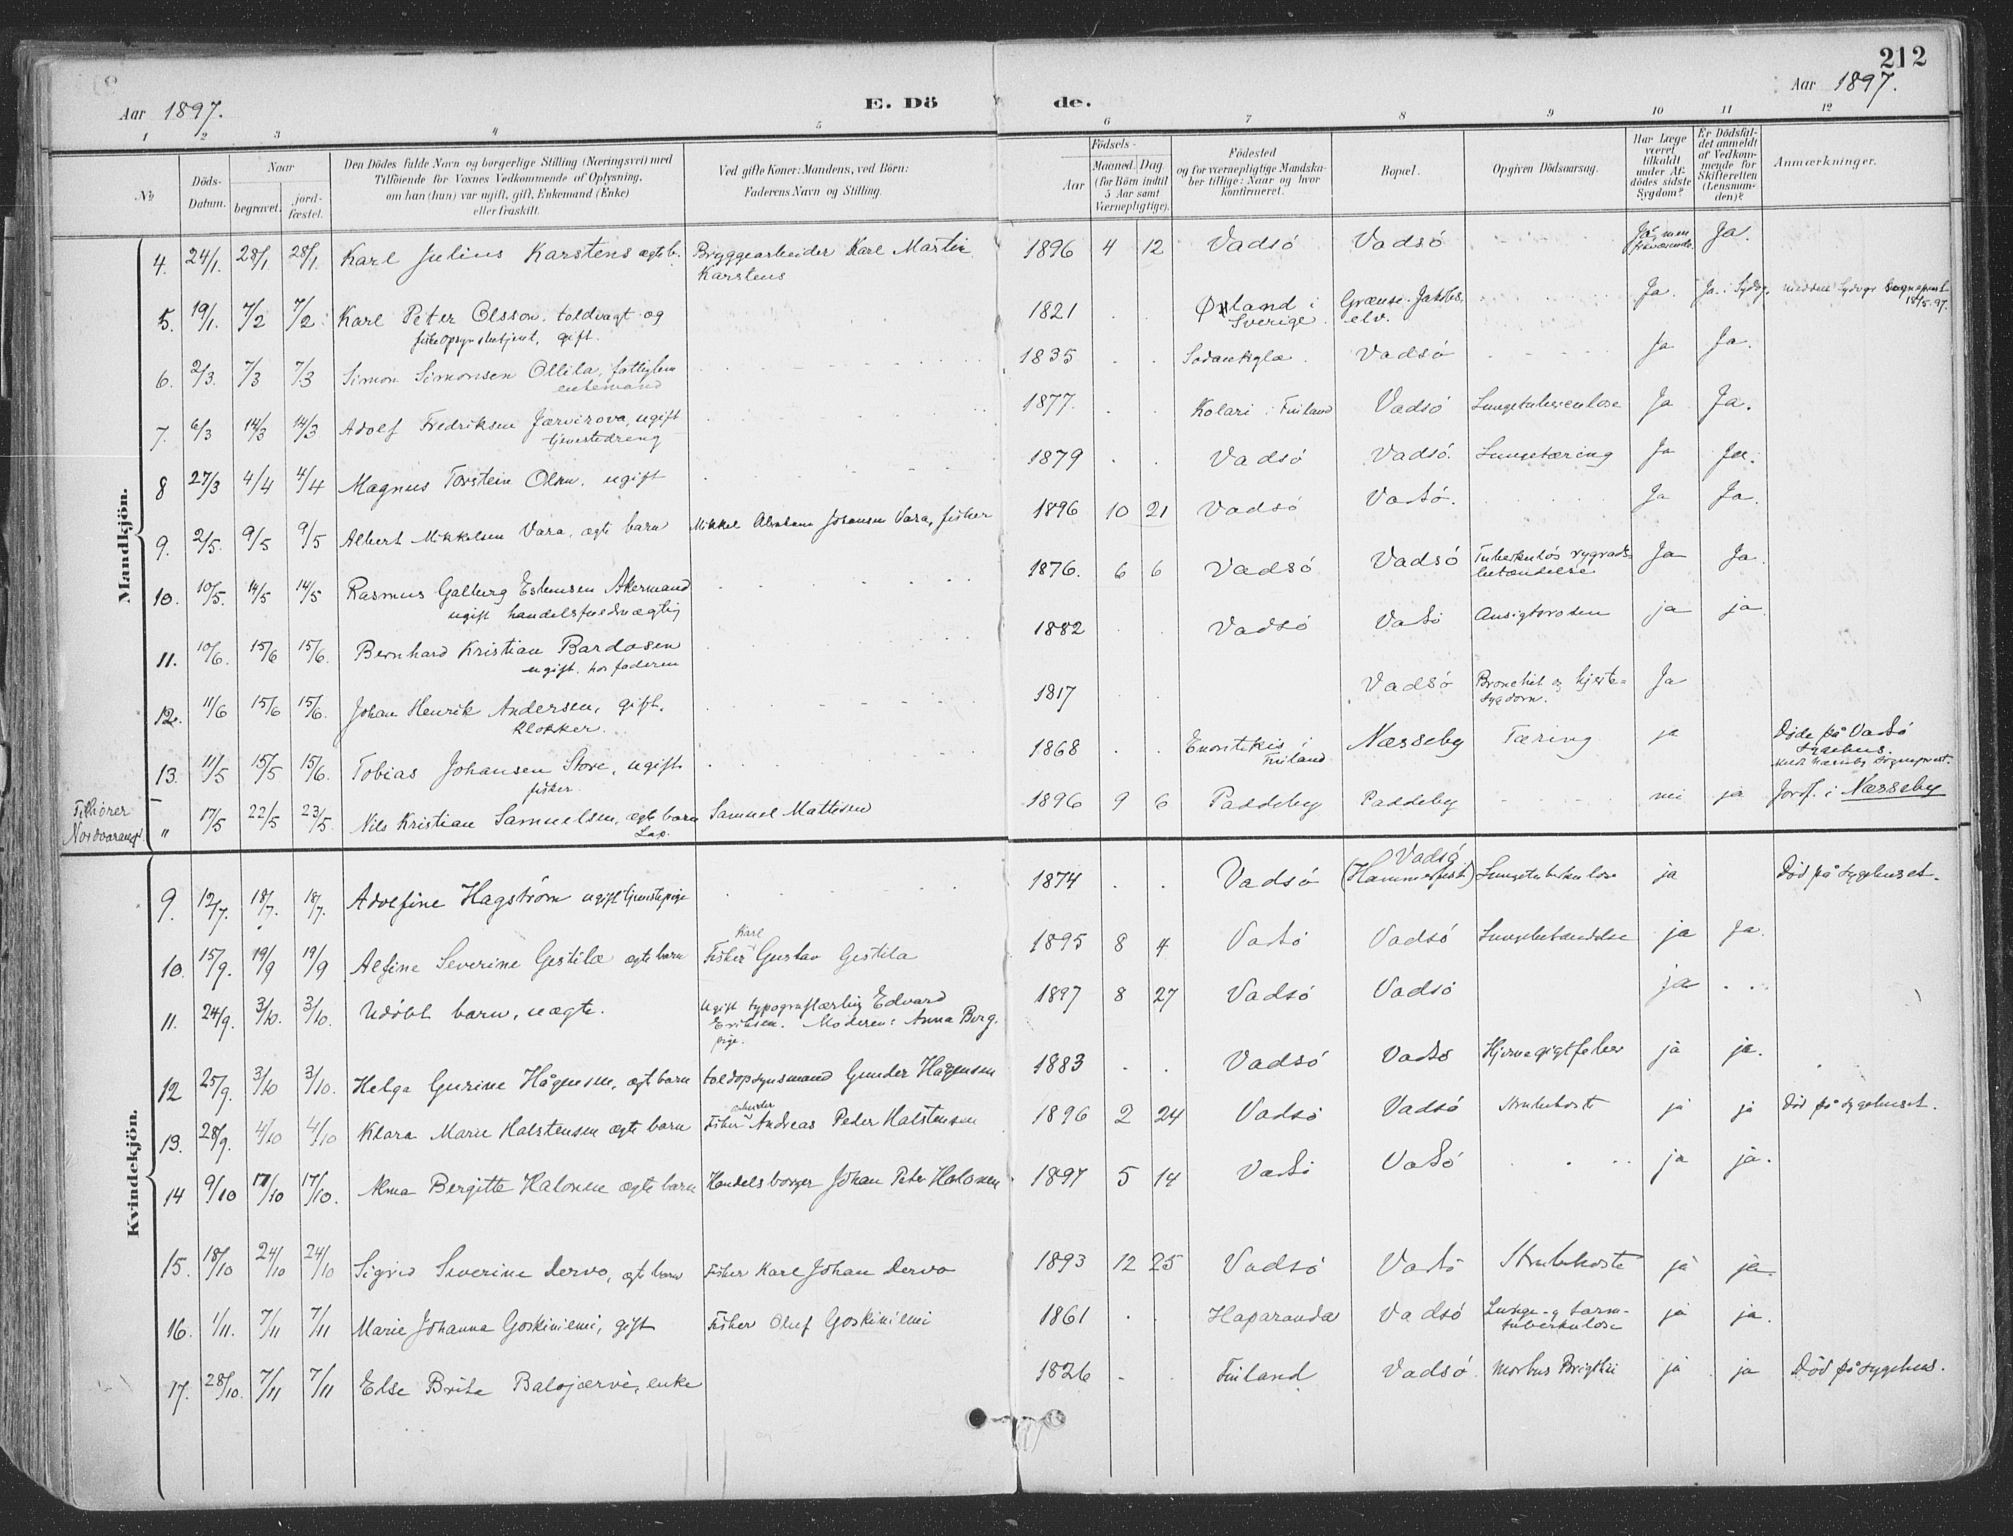 212
Aar 1897.
E. Dö de.
Aar 1897.
1 2 3 4 5 6 7 8 9 10 11 12
No
Döds-Datum.
Naar
begravet.
jord-fæstet.
Den Dödes fulde Navn og borgerlige Stilling (Næringsvei) med
Tilföiende for Voxnes Vedkommende af Oplysning,
om han (hun) var ugift, gift, Enkemand (Enke)
eller fraskilt.
Ved gifte Koner: Mandens, ved Börn:
Faderens Navn og Stilling.
Födsels-
Aar
Maaned. Dag.
(for Börn indtil
5 Aar samt
Værnepligtige).
Födested
og for værnepligtige Mandska-
ber tillige: Naar og hvor
konfirmeret.
Bopæl.
Opgiven Dödsaarsag.
Har Læge
været
tilkaldt
under Af-
dödes sidste
Sygdom?
Er Dödsfal-
det anmeldt
af Vedkom-
mende for
Skifteretten
(Lensman-
den)?
Anmærkninger.
Mandkjön.
4. 24/1. 28/1 28/1. Karl Julius Karstens ægte b. Bryggearbeider Karl Martin Karstens 1896 4 12 Vadsö Vadsö Ja, men Ja.
5. 19/1. 7/2 7/2 Karl Peter Olsson, toldvagt og
fiskeopsynsbetjent, gift. 1821 . . Øland i Sverige. Grænse-Jakobselv. Ja. Ja.
6. 2/3. 7/3 7/3 Simon Simonsen Ollila, fattiglem
enkemand 1835 . . Sodankylæ. Vadsö Ja Ja.
7. 6/3 14/3 14/3 Adolf Fredriksen Jærvirova, ugift
tjenestedreng 1877. . . Kolari i Finland Vadsö Lungetuberculose Ja Ja.
8 27/3 4/4 4/4 Magnus Torstein Olsen. ugift 1879 . . Vadsö Vadsö. Lungetæring Ja Ja.
9. 2/5. 9/5 9/5 Albert Mikkelsen Vara, ægte barn Mikkel Abraham Johansen Vara, fisker 1896 10 21 Vadsö Vadsö. Ja Ja.
10. 10/5. 14/5 14/5 Rasmus Galberg Esbensen Akermand
ugift handelsfuldmægtig 1876. 6 6 Vadsö Vadsö Tuberkuløs rygrads-
betændelse Ja Ja.
11. 10/6. 15/6 15/6. Bernhard Kristian Bardosen
ugift. hos faderen 1882 . . Vadsö Vadsö Ansigtsrosen ja ja.
12. 11/6 15/6 15/6. Johan Henrik Andersen, gift.
klokker. 1817 . . Vadsö Bronchit og hjerte-
sygdom. Ja
13. 11/5 15/5 15/6. Tobias Johansen Store, ugift
fisker. 1868 . . Enontekis i Finland Næsseby Tæring ja Döde på Vadsö
sygehus.
Tilhører
Nordvaranger.
" 17/5 22/5 23/5. Nils Kristian Samuelsen, ægte barn
Lap. Samuel Mattisen 1896 9 6 Paddeby Paddeby nei ja Jordf. i Næsseby
Kvindekjön.
9. 12/7. 18/7. 18/7. Adolfine Hagström ugift tjenestepige 1874 . . Vadsö Vadsö
(Hammerfest) Lungetuberkulose ja Död på sygehuset.
10. 15/9. 19/9 19/9 Alfine Severine Gestilæ ægte barn Fisker Karl Gustav Gestila 1895 8 4 Vadsö Vadsö Lungebetændelse ja Ja.
11. 24/9. 3/10. 3/10. Udöbt barn, uægte. Ugift typograflærling Edvard
Eriksen. Moderen: Anna Berg,
pige. 1897 8 27 Vadsö Vadsö ja . . .
12 25/9. 3/10 3/10. Helga Gurine Hågensen, ægte barn toldopsynsmand Gunder Hagensen 1883 . . Vadsö Vadsö Hjernegigtfeber ja ja.
13. 28/9. 4/10 4/10 Klara Marie Halstensen ægte barn Fisker Andreas Peder Halstensen 1896 2 24 Vadsö Vadsö Strubehoste ja ja Död på sygehuset.
14 9/10 17/10 17/10. Alma Bergitte Halonen ægte barn Handelsborger Johan Peter Halonen 1897 5 14 Vadsö Vadsö ja ja.
15. 18/10 24/10 24/10 Sigrid Severine Dervo, ægte barn Fisker Karl Johan Dervo 1893 12 25 Vadsö Vadsö Strubehoste ja ja.
16. 1/11. 7/11 7/11 Marie Johanna Goskiniemi, gift Fisker Oluf Goskiniemi 1861 . . Haparanda Vadsö Lunge- og tarm-
tuberkulose ja ja.
17. 28/10. 7/11 7/11 Else Brita Balojærvi, enke 1826 . . Finland Vadsö Morbus Brigthii ja ja Död på sygehus.